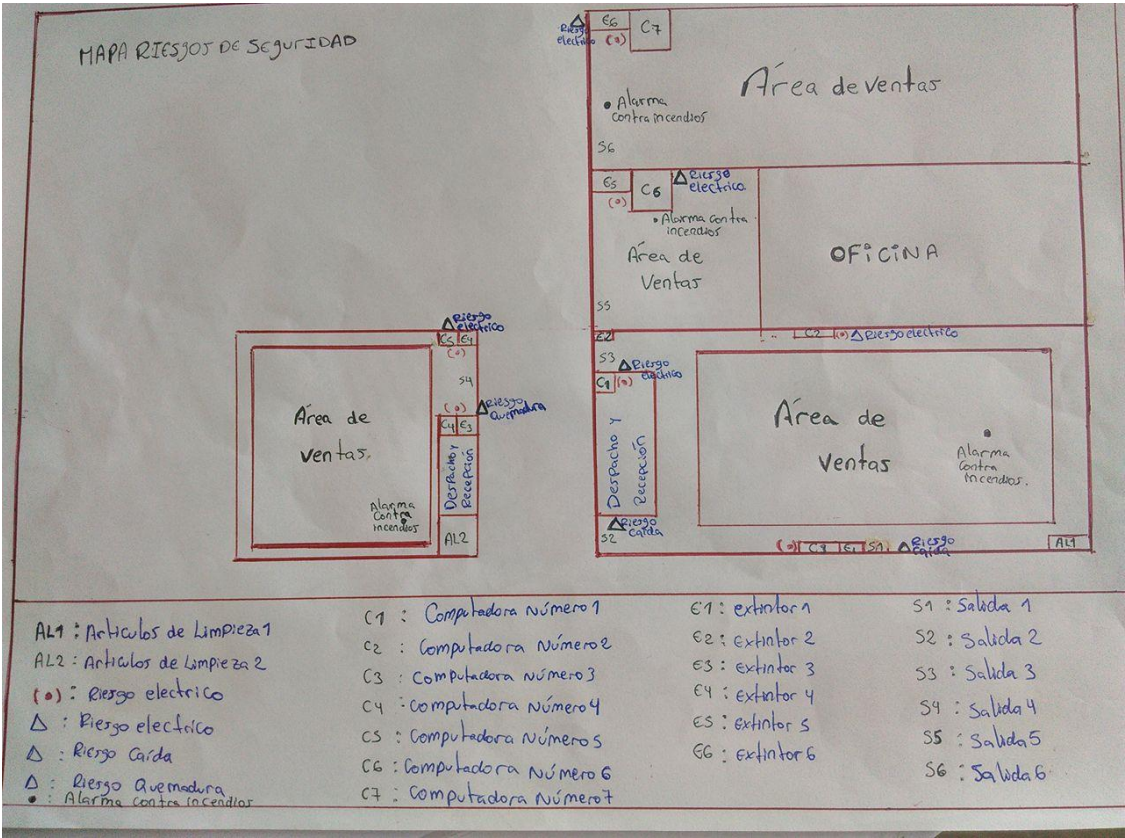 MAPA RIESGOS DE SEGURIDAD
Riesgo
electrico
E6
C7
(•)
Área de ventas
Alarma
contra incendios
S6
E5
C6
Riesgo
electrico
(•)
Alarma contra
incendios
Área de
Ventas
OFICINA
S5
Riesgo
electrico
C5
E4
(•)
S4
(•)
Riesgo
Quemadura
C4
E3
Área de
ventas.
Despacho y
Recepción
Alarma
Contra
incendios
AL2
E2
C2
(•)
Riesgo electrico
S3
Riesgo
electrico
C1
(•)
Despacho y
Recepción
Área de
Ventas
Alarma
Contra
incendios.
S2
Riesgo
Caída
(•)
C3
E1
S1
Riesgo
Caída
AL1
AL1 : Articulos de Limpieza 1
AL2 : Articulos de Limpieza 2
(•) : Riesgo electrico
Δ : Riesgo electrico
Δ : Riesgo Caída
Δ : Riesgo Quemadura
• : Alarma contra incendios
C1 : Computadora Número 1
C2 : Computadora Número 2
C3 : Computadora Número 3
C4 : Computadora Número 4
C5 : Computadora Número 5
C6 : Computadora Número 6
C7 : Computadora Número 7
E1 : extintor 1
E2 : Extintor 2
E3 : Extintor 3
E4 : Extintor 4
E5 : Extintor 5
E6 : Extintor 6
S1 : Salida 1
S2 : Salida 2
S3 : Salida 3
S4 : Salida 4
S5 : Salida 5
S6 : Salida 6